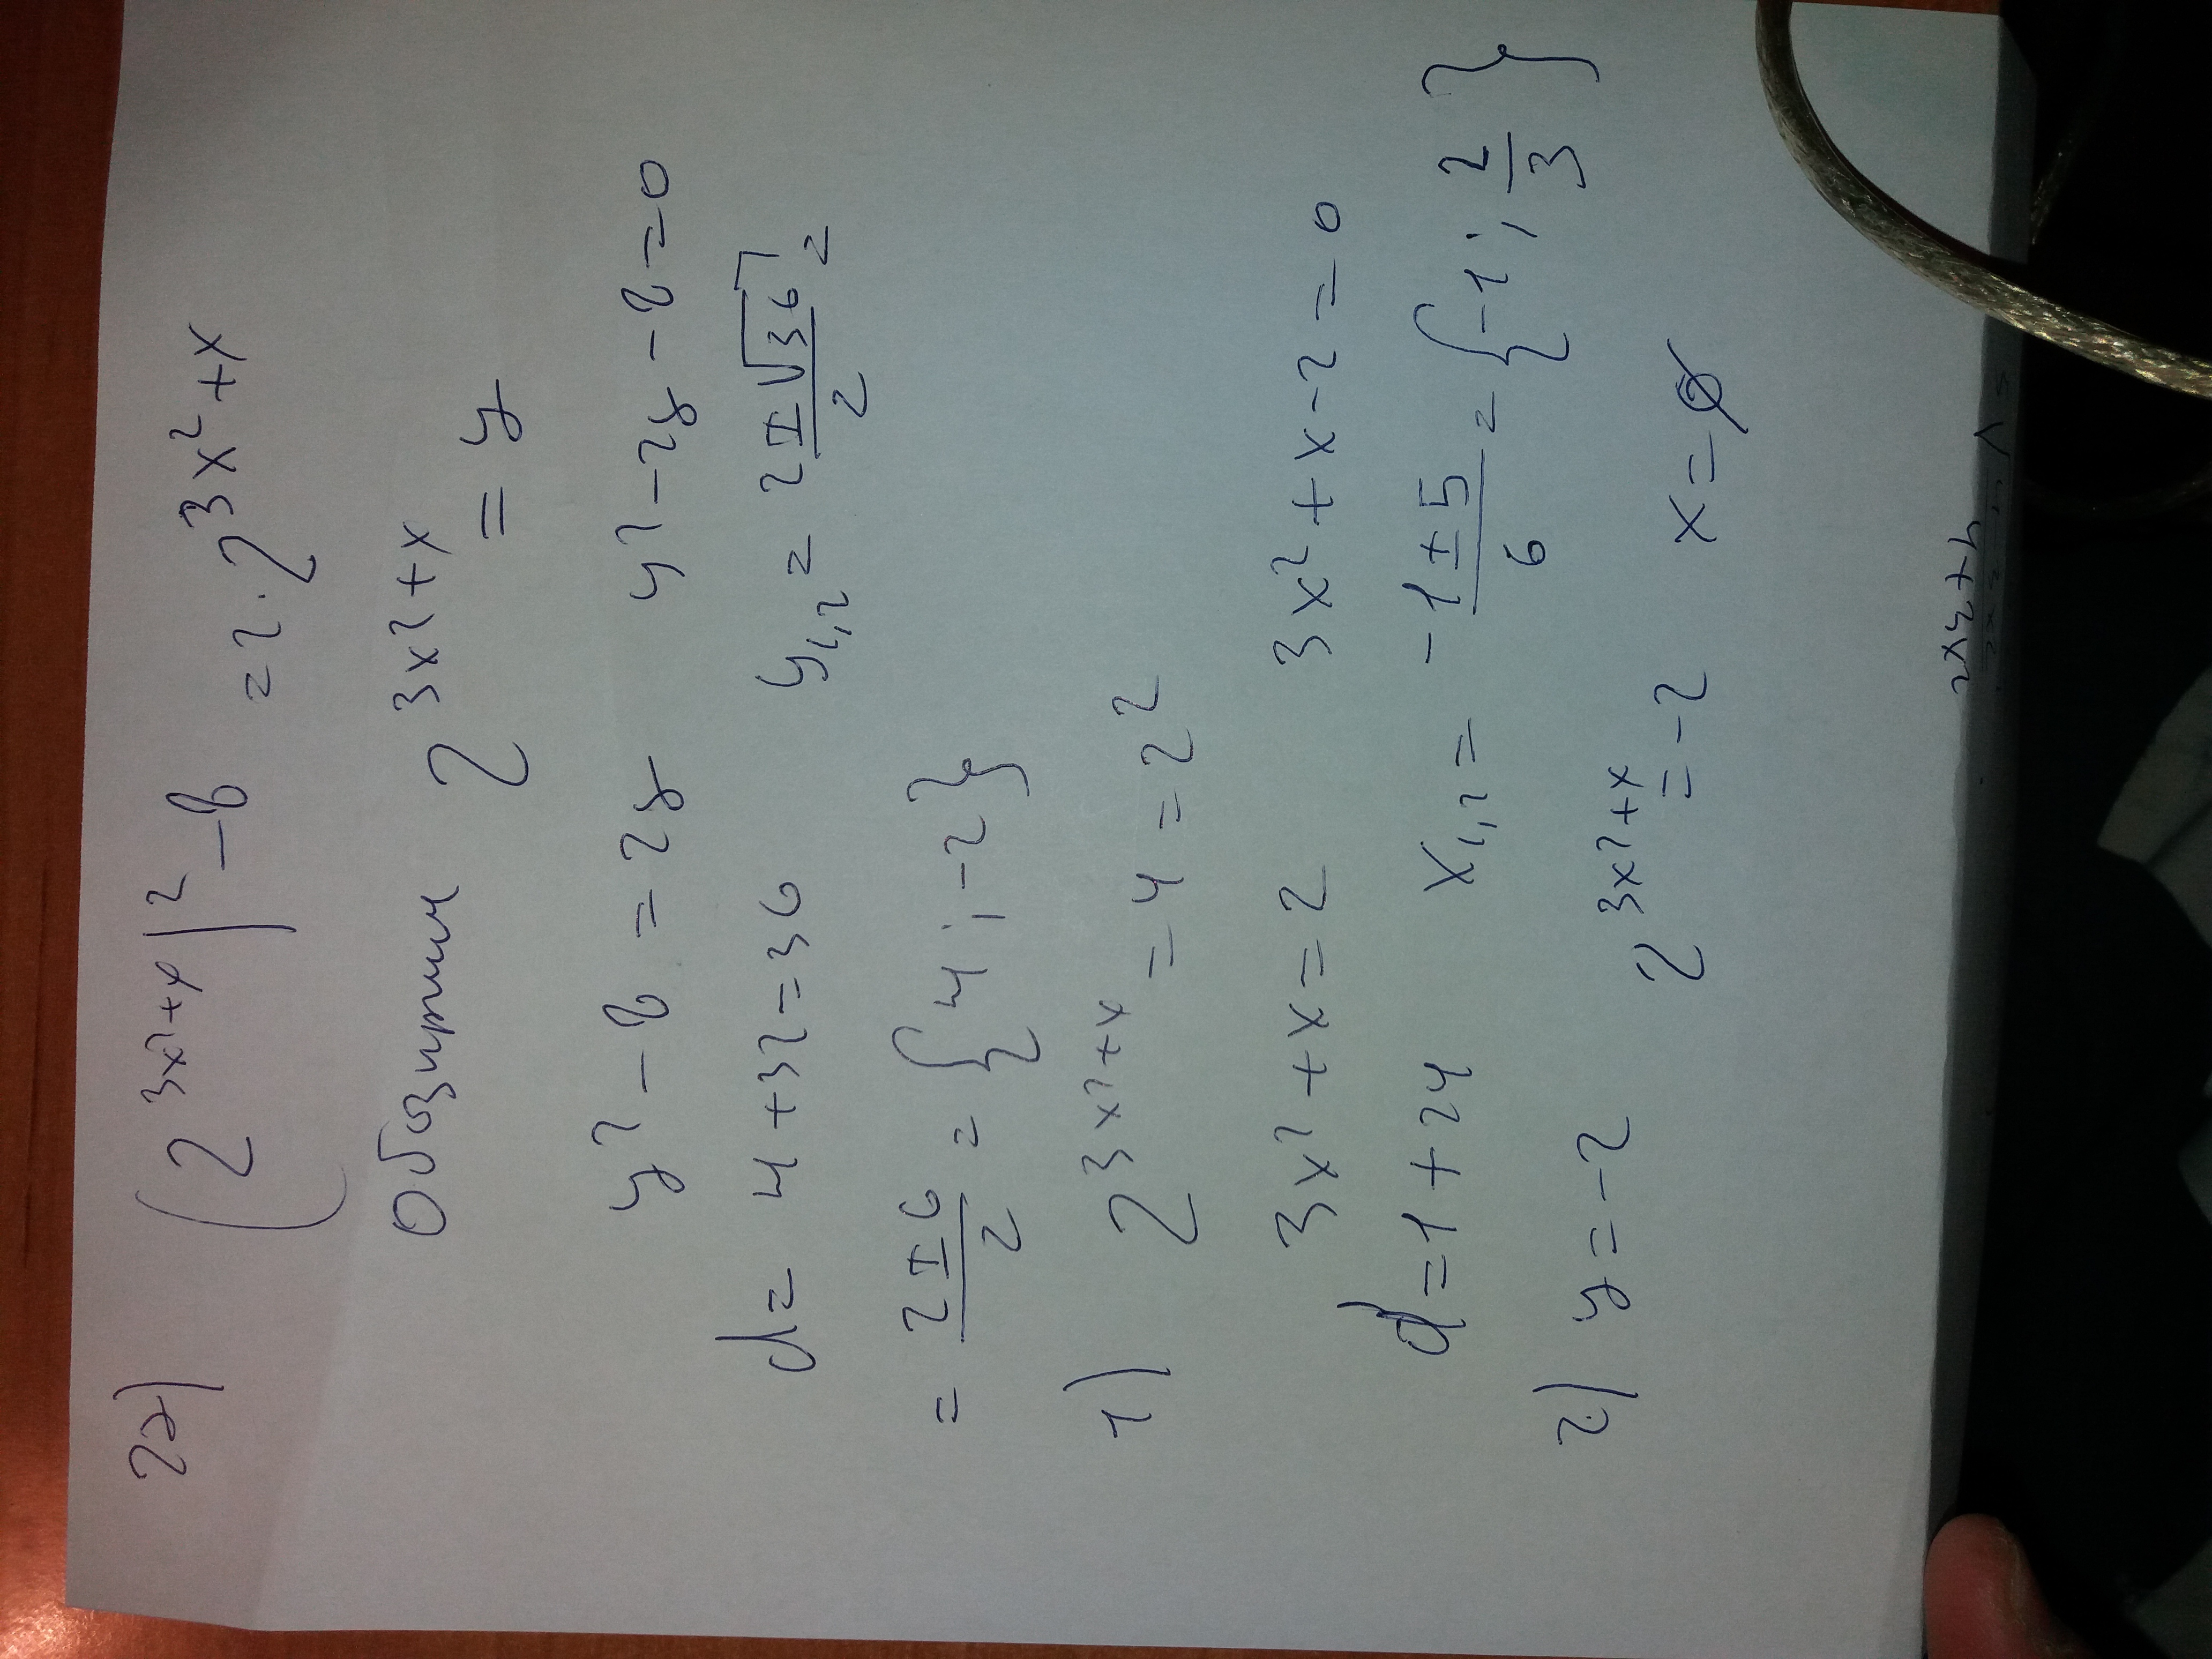 2a) (2^{3x²+x})² - 8 = 2·2^{3x²+x}
Обозначим 2^{3x²+x} = y
y² - 8 = 2y y² - 2y - 8 = 0
d = 4 + 32 = 36 y_{1,2} = \frac{2±\sqrt{36}}{2} =
= \frac{2±6}{2} = {4; -2}
1) 2^{3x²+x} = 4 = 2²
3x² + x = 2 3x² + x - 2 = 0
d = 1 + 24 x_{1,2} = \frac{-1±5}{6} = {-1; \frac{2}{3}}
2) y = -2 2^{3x²+x} = -2 x = ∅